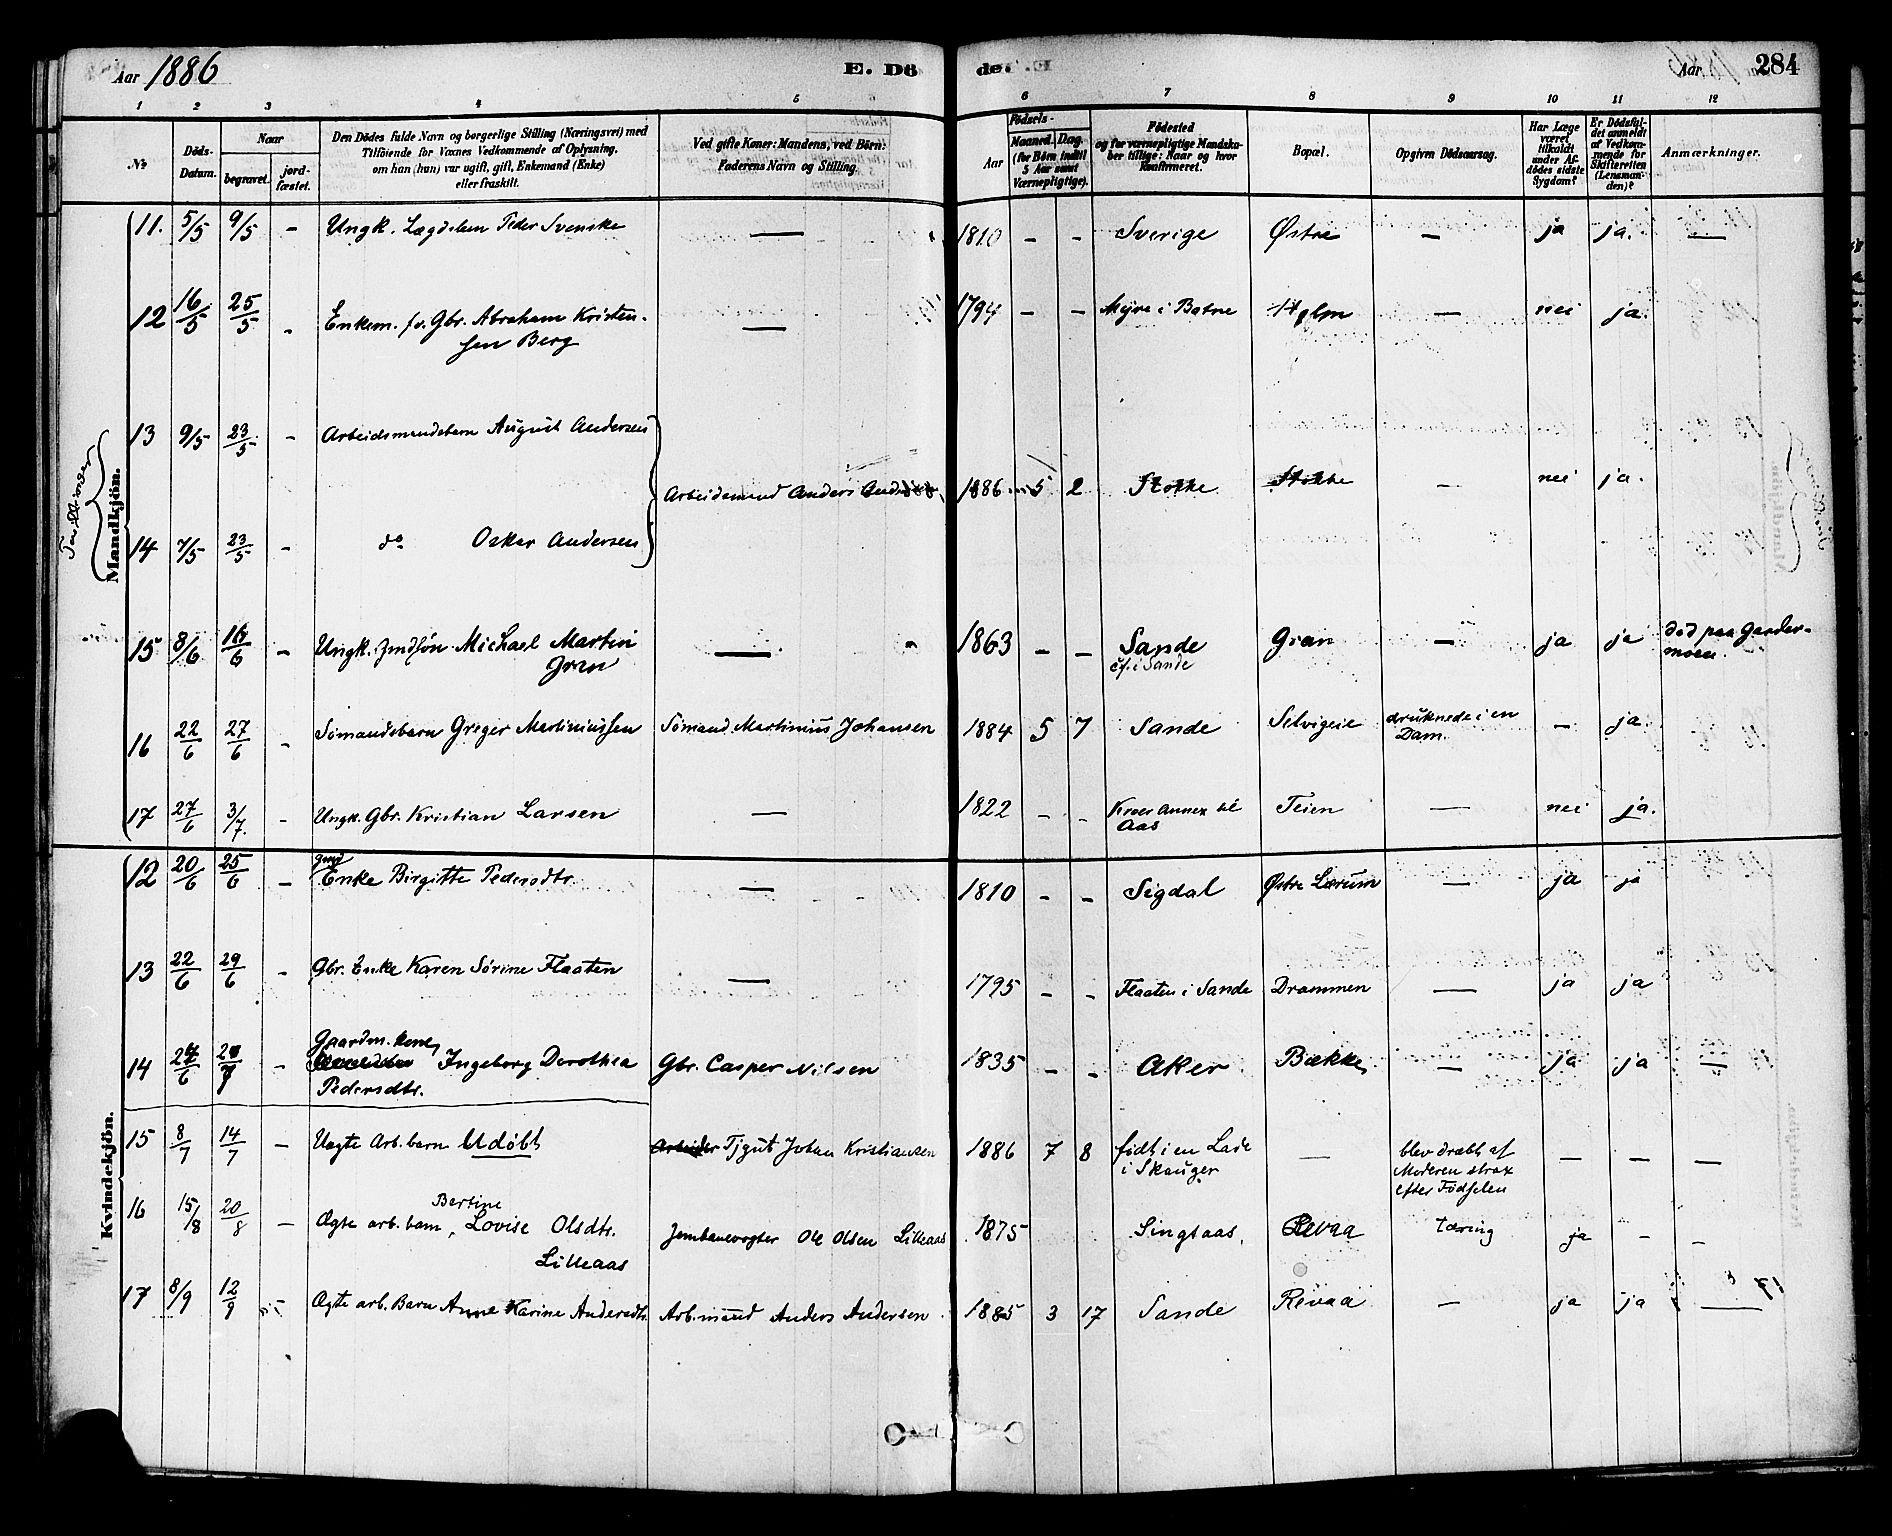 Aar 1886 E. Dö de. Aar 284
1 2 3 4 5 6 7 8 9 10 11 12
No
Döds-
Datum.
Naar
begravet.
jord-
fæstet.
Den Dödes fulde Navn og borgerlige Stilling (Næringsvei) med
Tilföiende for Voxnes Vedkommende af Oplysning,
om han (hun) var ugift, gift, Enkemand (Enke)
eller fraskilt.
Ved gifte Koner: Mandens, ved Börn:
Faderens Navn og Stilling.
Födsels-
Aar
Maaned. Dag.
(for Börn indtil
5 Aar samt
Værnepligtige).
Födested
og for værnepligtige Mandska-
ber tillige: Naar og hvor
Konfirmeret.
Bopæl.
Opgiven Dödsaarsag.
Har Læge
været
tilkaldt
under Af-
dödes sidste
Sygdom?
Er Dödsfal-
det anmeldt
af Vedkom-
mende for
Skifteretten
(Lensman-
den)?
Anmærkninger.
Mandkjön.
11. 5/5 9/5 - Ungk. Lægdslem Peder Svenske — 1810 - - Sverige Østre — ja ja. —
12 16/5 25/5 - Enkem. fv. Gbr. Abraham Kristen-
sen Berg — 1794 - - Myre i Botne Holm — nei ja.
13 9/5 23/5 - Arbeidsmandsbarn August Andersen
Arbeidsmand Anders 1886 5 2 Stokke Stokke - nei ja.
14 7/5 23/5 - do Oskar Andersen
15 8/6 16/6 - Ungk. Michael Martin
Gran — 1863 - - Sande
cf. i Sande Gran — ja ja död paa Garder-
moen.
16 22/6 27/6 - Sömandsbarn Greger Martiniussen Sömand Martinius Johansen 1884 5 7 Sande Selvigeie druknede i en
Dam. - ja
17 27/6 3/7. - Ungk. Gbr. Kristian Larsen — 1822 - - Kroer Annex til
Aas Teien — nei ja.
Kvindekjön.
12 20/6 25/6 - gmd
Enke Birgitte Pedersdtr. — 1810 - - Sigdal Østre Lærum — ja ja
13 22/6 29/6 - Gbr. Enke Karen Sörine Flaaten — 1795 - - Flaaten i Sande Drammen — ja ja
Gaardm. kone
14 - Ingeborg Dorothea
Pedersdtr. Gbr. Casper Nilsen 1835 - - Aker Bække — ja ja —
15 8/7 14/7 - Uegte Arb. barn Udøbt Arbeider Tjgut Johan Kristiansen 1886 7 8 født i en Lade
i Skauger — blev dræbt af
Moderen strax
efter Födselen — — —
16 15/8 20/8 - Ægte arb. barn, Bertine
Lovise Olsdtr.
Lilleaas Jernbanevogter Ole Olsen Lilleaas 1875 Singsaas, Revaa Tæring ja - -
17 8/9 12/9 - Ægte arb. Barn Anne Karine Andersdtr. Arb.mand Anders Andersen 1885 3 17 Sande Revaa — ja ja —